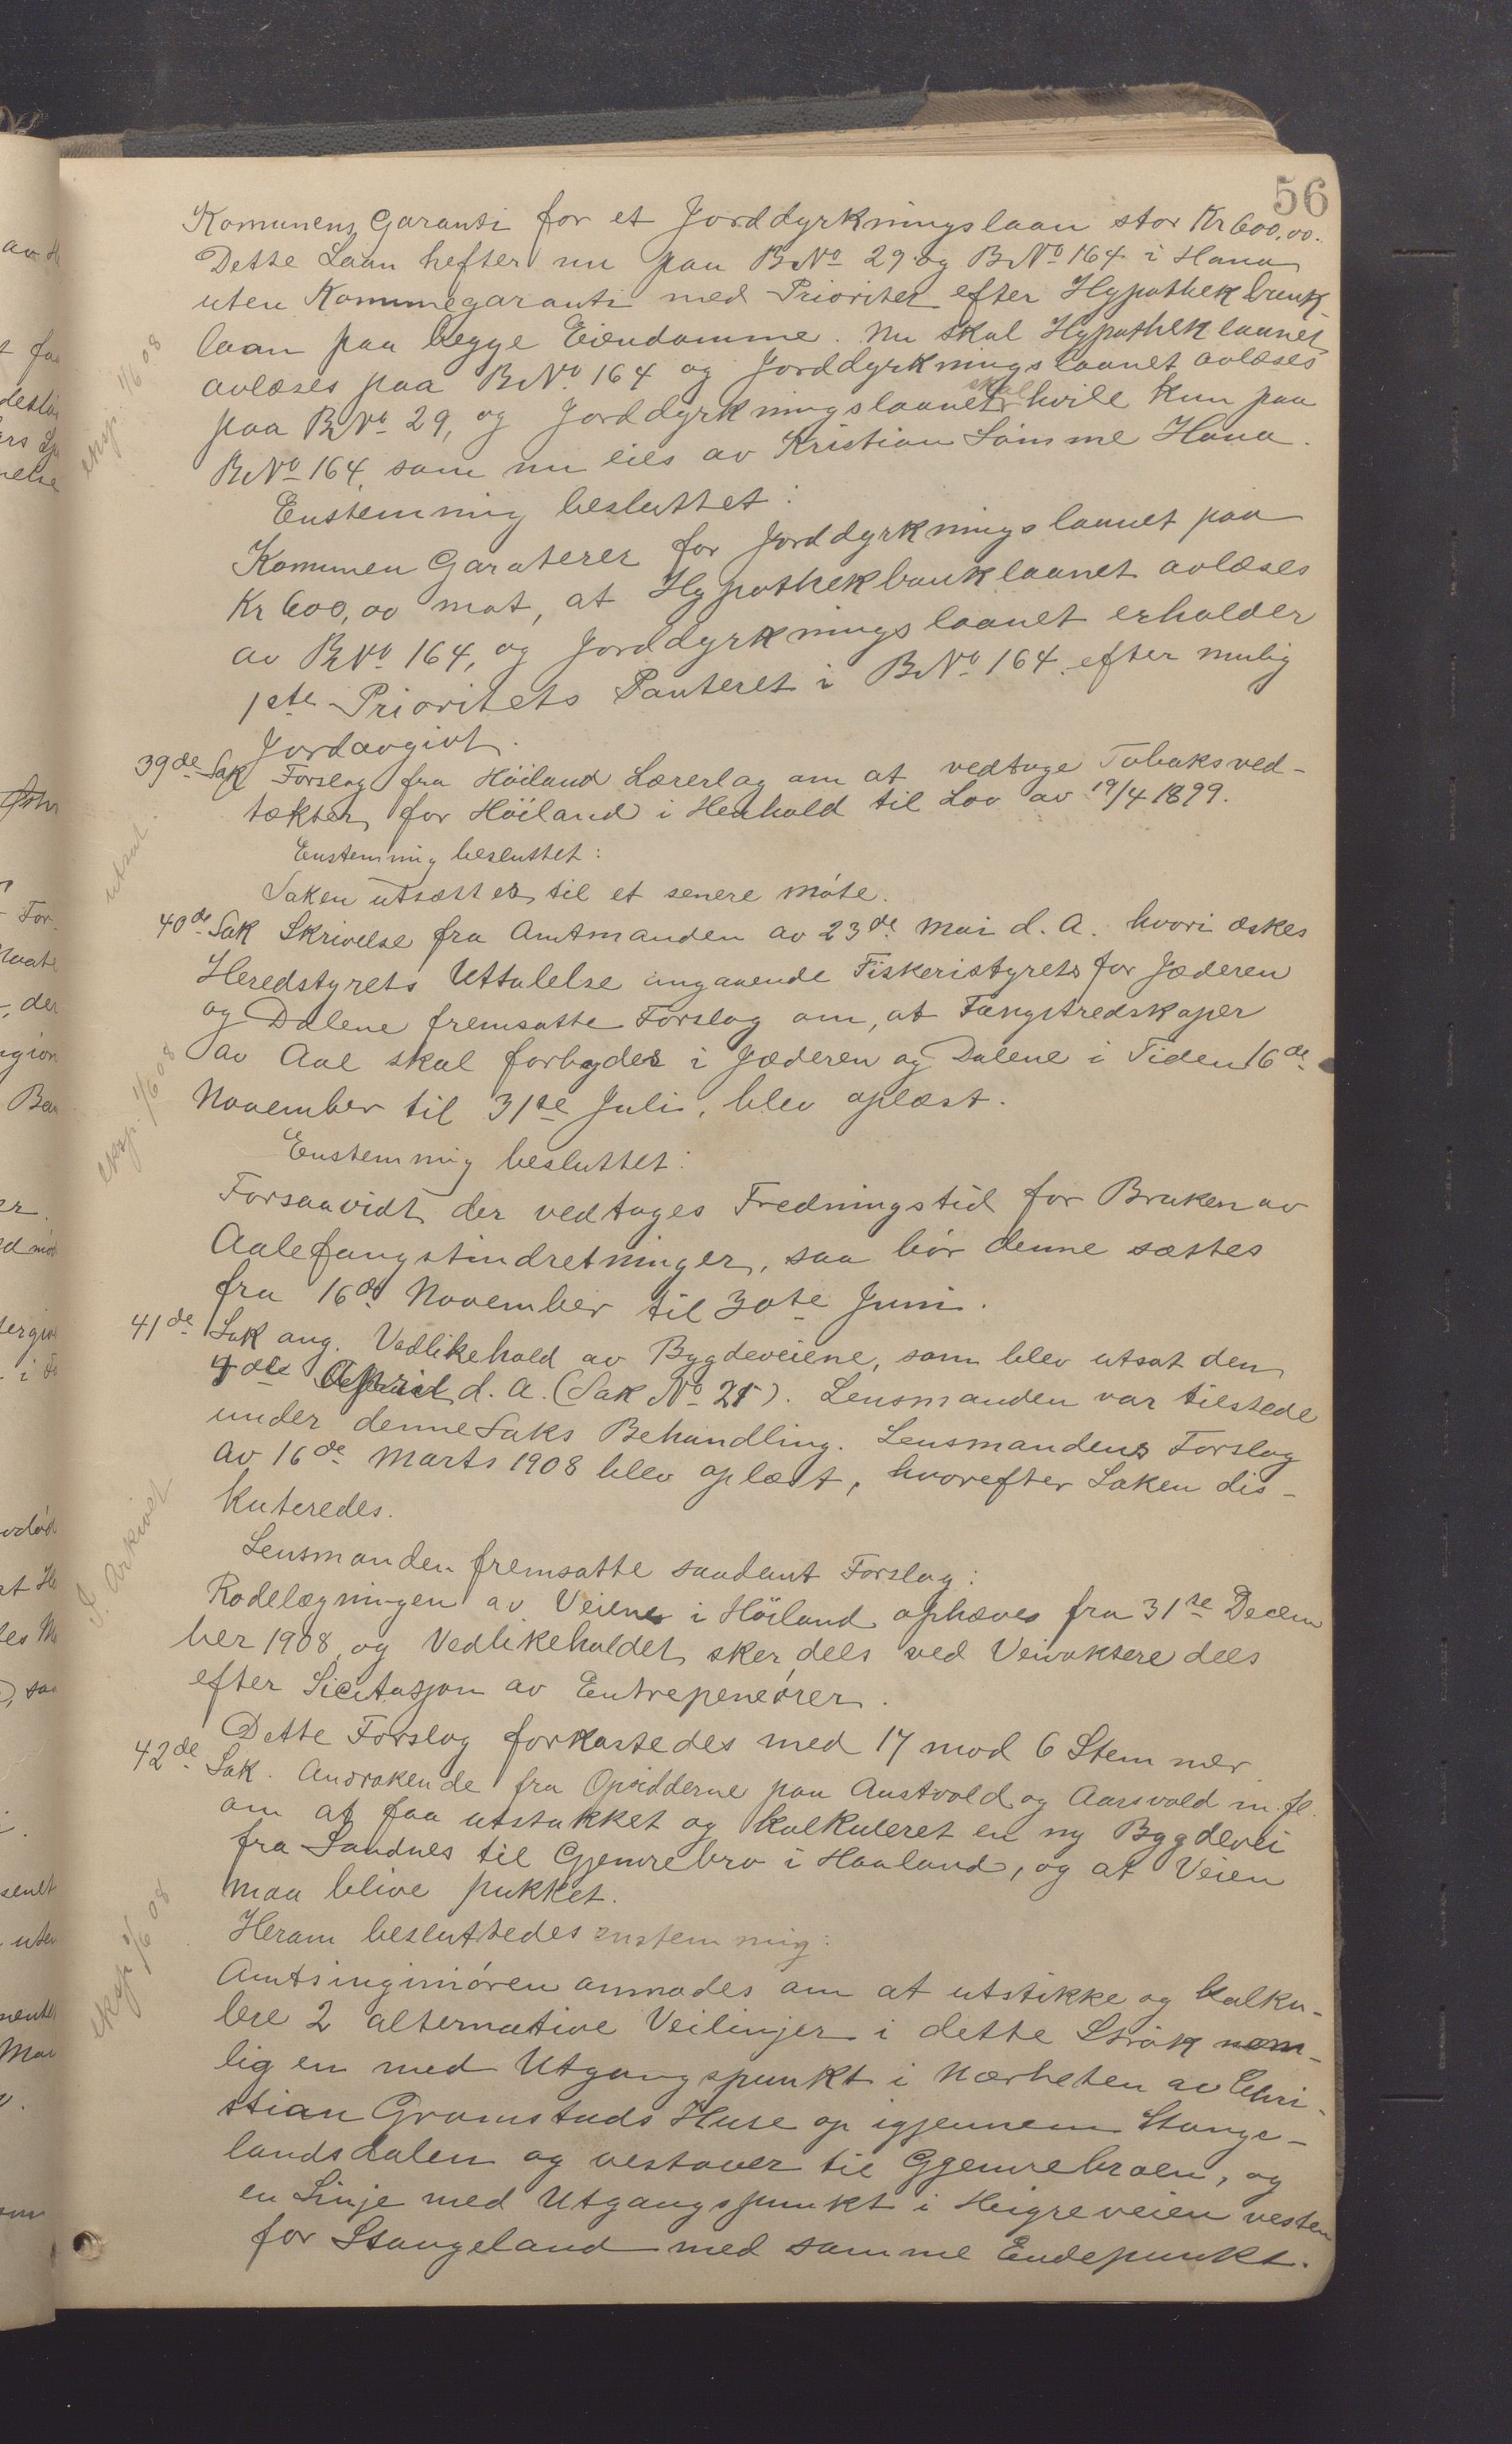 56
Komunens Garanti for et Jorddyrkningslaan stor Kr 600,00.
Dette Laan hefter nu paa B.No 29 og B.No 164 i Hana
uten Kommunegaranti med Prioritet efter Hypothekbank-
laan paa begge Eiendomme. Nu skal Hypotheklaanet
avløses paa B.No. 164 og Jorddyrkningslaanet avløses
paa B.No 29, og Jorddyrkningslaanet skal hvile kun paa
B.No 164, som nu eies av Kristian Sømme Hana.
Enstemmig besluttet:
Komunen Garaterer for Jorddyrkningslaanet paa
Kr 600,00 mot, at Hypothekbanklaanet avløses
av B.No. 164, og Jorddyrkningslaanet erholder
1ste Prioritets Panteret i B.No. 164 efter mulig
Jordavgivt.
eksp. 1/6 08
39de Sak Forslag fra Höiland Lærerlag om at vedtage Tobaksved-
tækter for Höiland i Henhold til Lov av 19/4 1899.
Enstemmig besluttet:
Saken utsættes til et senere møte.
utsat.
40de Sak Skrivelse fra Amtmanden av 23de Mai d. A. hvori æskes
Heredstyrets Uttalelse angaaende Fiskeristyrets for Jæderen
og Dalene fremsatte Forslag om, at Fangstredskaper
av Aal skal forbydes i Jæderen og Dalene i Tiden 16de
November til 31te Juli, blev oplæst.
Enstemmig besluttet:
Forsaavidt der vedtages Fredningstid for Bruken av
Aalefangstindretninger, saa bör denne sættes
fra 16de November til 30te Juni.
eksp. 1/6 08
41de Sak ang. Vedlikehold av Bygdeveiene, som blev utsat den
4de April d. A. (Sak No 21). Lensmanden var tilstede
under denne Saks Behandling. Lensmandens Forslag
av 16de Marts 1908 blev oplæst, hvorefter Saken dis-
kuteredes.
Lensmanden fremsatte saadant Forslag:
Rodelægningen av Veiene i Höiland ophæves fra 31te Decem
ber 1908, og Vedlikeholdet sker dels ved Veivoktere dels
efter Licitasjon av Entrepenører.
Dette Forslag forkastedes med 17 mod 6 Stemmer
Arkivet
42de Sak. Andrakende fra Opsidderne paa Austvold og Aarsvold m. fl.
om at faa utstukket og kalkuleret en ny Bygdevei
fra Sandnes til Gjemrebro i Haaland, og at Veien
maa blive pukket.
Herom besluttedes enstemmig:
Amtsinginiören anmodes om at utstikke og kalku-
lere 2 alternative Veilinjer i dette Strök nem-
lig en med Utgangspunkt i Nærheten av Chri-
stian Gramstads Huse op igjennem Stange-
landsdalen og vestover til Gjemrebroen, og
en Linje med Utgangspunkt i Heigreveien vesten
for Stangeland med samme Endepunkt.
eksp 1/6 08